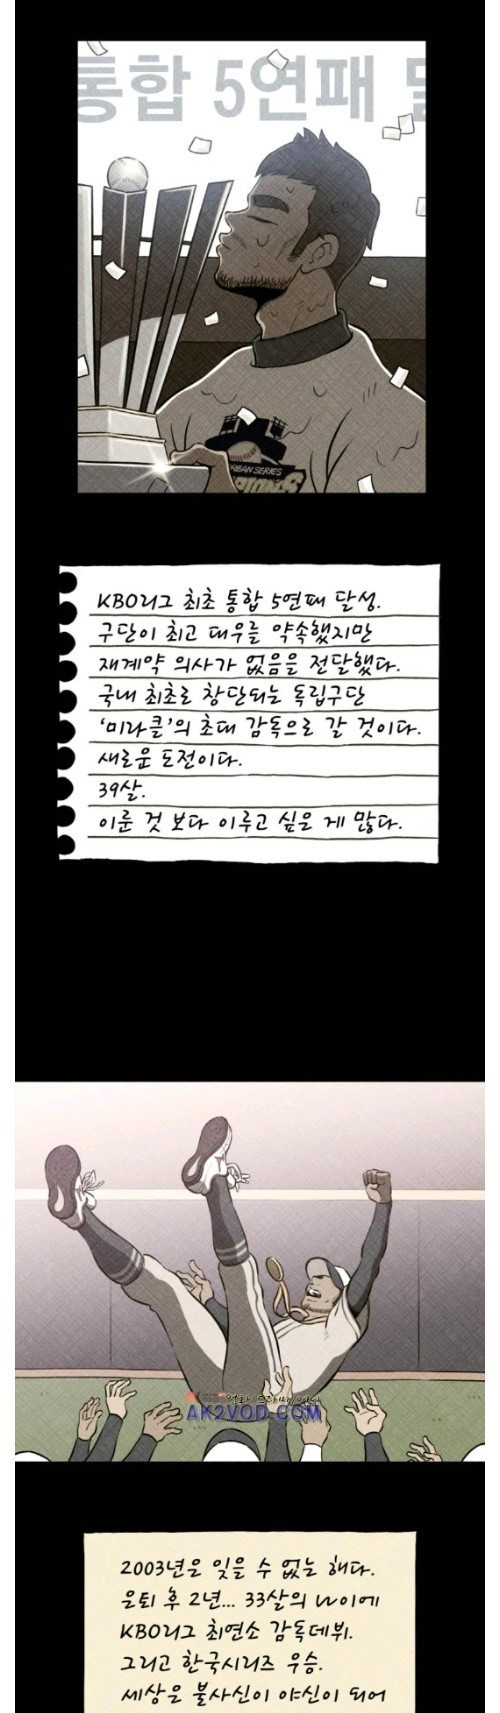 통합 5연패 달
KOREAN SERIES
KBO리그 최초 통합 5연패 달성.
구단이 최고 대우를 약속했지만
재계약 의사가 없음을 전달했다.
국내 최초로 창단되는 독립구단
'미라클'의 초대 감독으로 갈 것이다.
새로운 도전이다.
39살.
이룬 것 보다 이루고 싶은 게 많다.
영화/드라마/
AK2VOD.COM
2003년은 잊을 수 없는 해다.
은퇴 후 2년... 33살의 나이에
KBO리그 최연소 감독데뷔.
그리고 한국시리즈 우승.
세상은 불사신이 야신이 되어